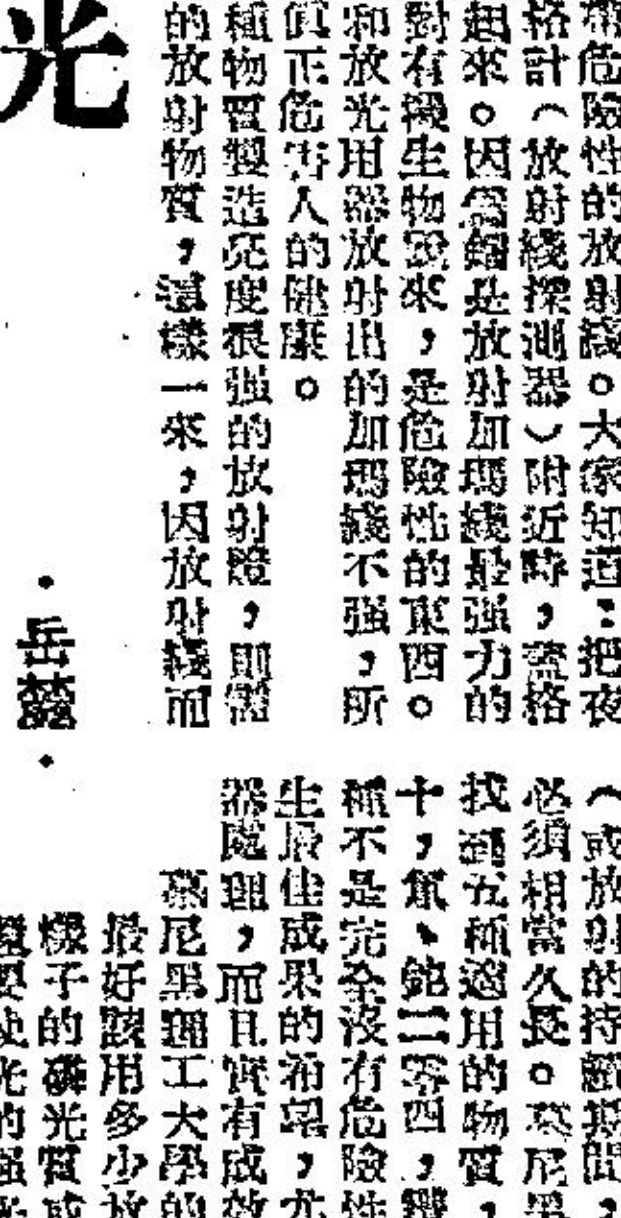 帶危險性的放射綫。大家知道：把夜
格計（放射綫探測器）附近時，蓋格
起來。因爲鐳是放射加瑪綫最强力的
對有機生物說來，是危險性的東西。
和放光用器放射出的加瑪綫不强，所
眞正危害人的健康。
種物質製造亮度很强的放射燈，即需
的放射物質，這樣一來，因放射綫而
光
·岳麓·
（或放射的持續期間，
必須相當久長。慕尼黑
找到五種適用的物質，
十，氪、鉈二零四，
種不是完全沒有危險性
生最佳成果的，尤
器處理，而且實有成效
慕尼黑理工大學的
最好該用多少放
樣子的磷光質或
還要使光的强光